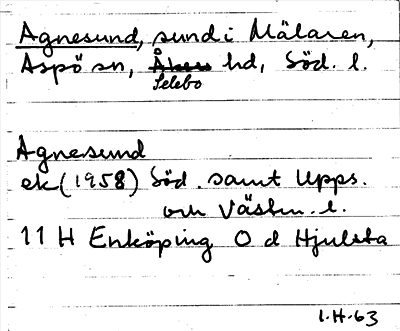 Agnesund, sund i Mälaren,
Aspö sn, Åkers hd, Söd. l.
Selebo
Agnesund
ek (1958) Söd. samt Upps.
och Västm. l.
11 H Enköping O d Hjulsta
1.H.63